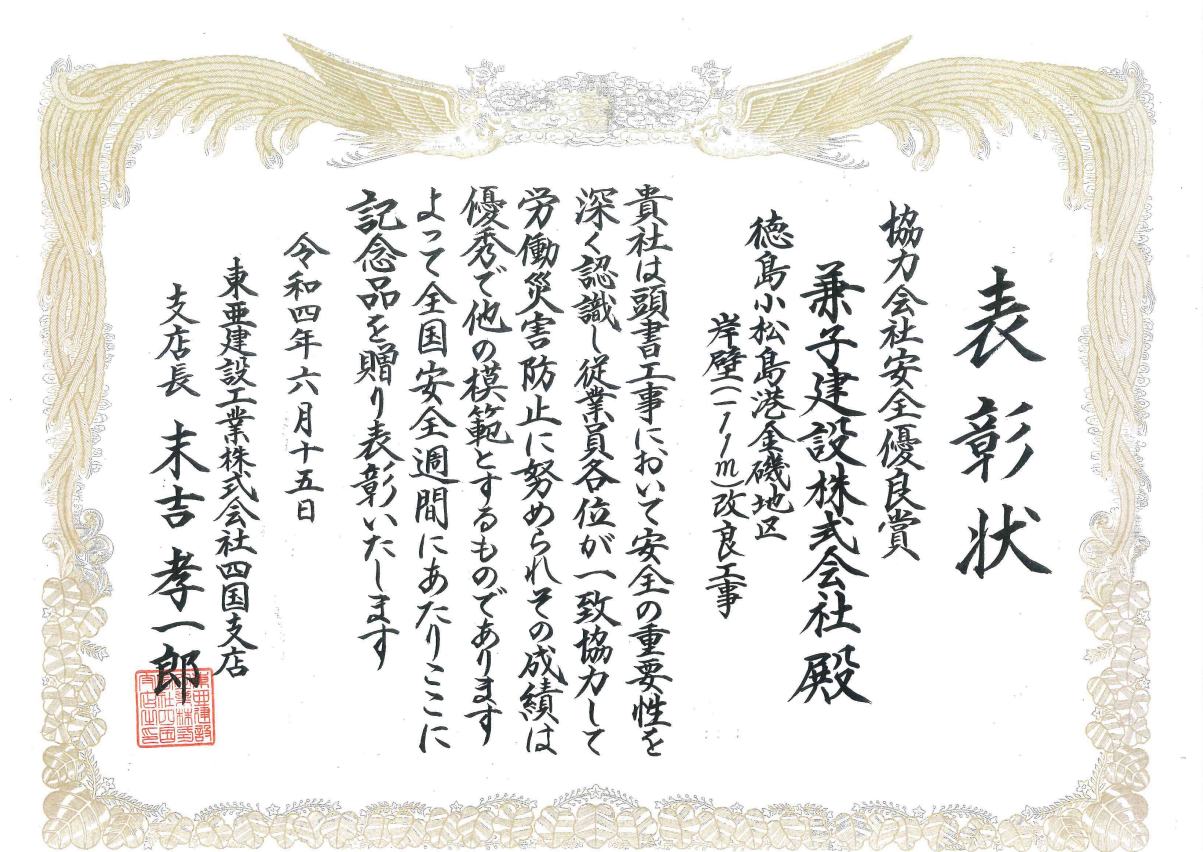 表彰状
協力会社安全優良賞
兼子建設株式会社 殿
徳島小松島港金磯地区
岸壁(-11m)改良工事
貴社は頭書工事において安全の重要性を
深く認識し従業員各位が一致協力して
労働災害防止に努められその成績は
優秀で他の模範とするものであります
よって全国安全週間にあたりここに
記念品を贈り表彰いたします
令和四年六月十五日
東亜建設工業株式会社四国支店
支店長 末吉孝一郎
東亜建設
工業株式
会社四国
支店之印